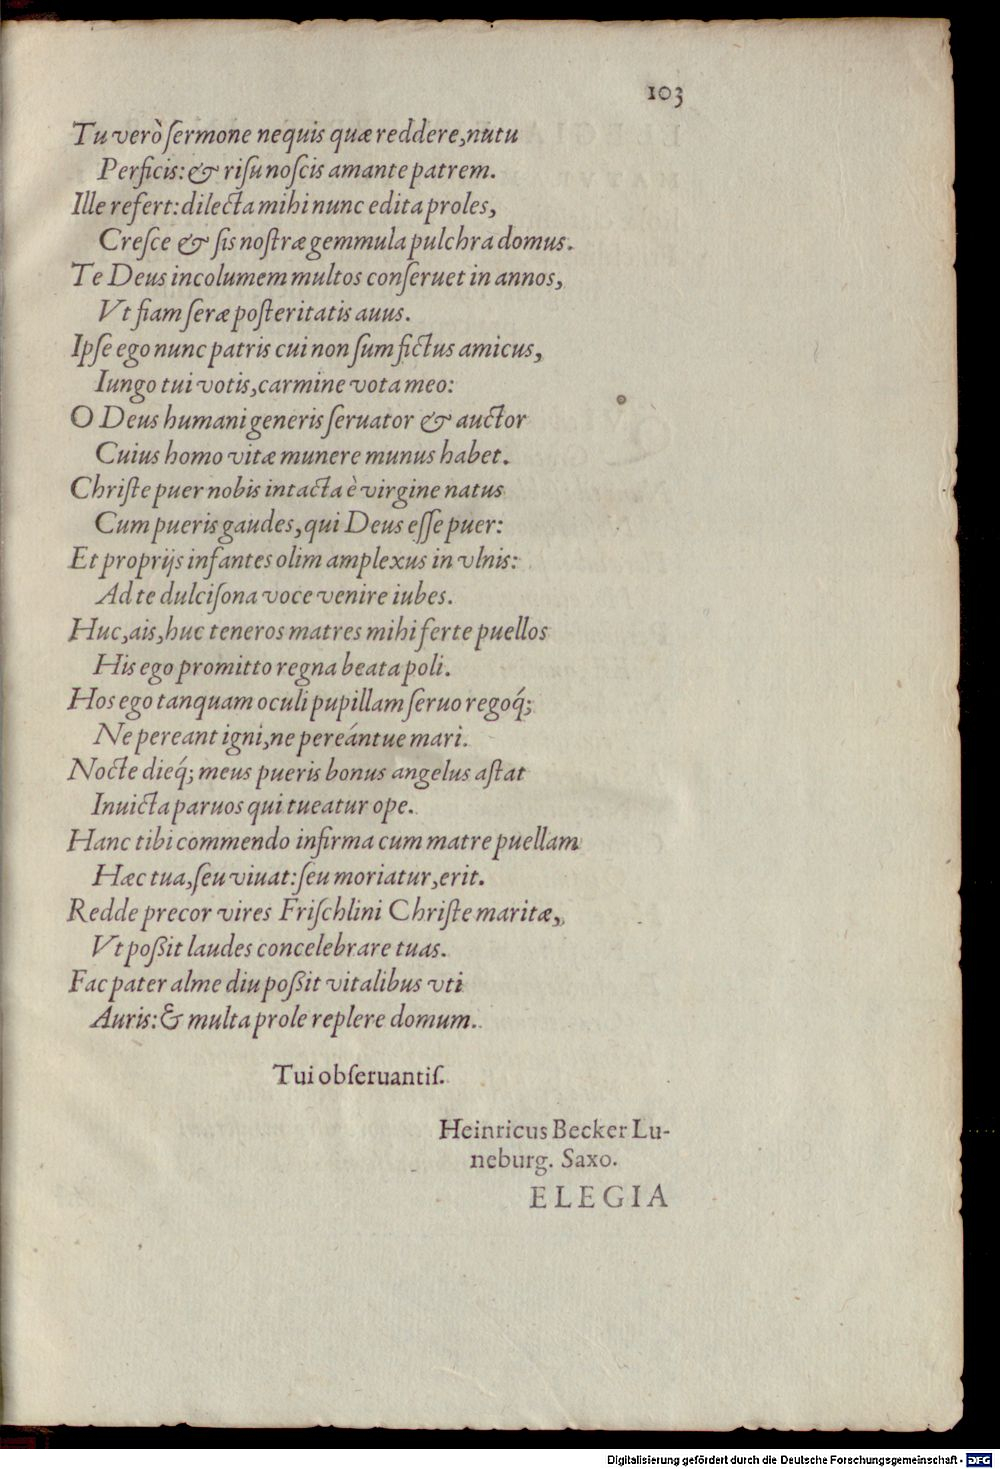 103
Tu verò ſermone nequis quæ reddere, nutu
Perficis: & riſu noſcis amante patrem.
Ille refert: dilecta mihi nunc edita proles,
Creſce & ſis noſtræ gemmula pulchra domus.
Te Deus incolumem multos conſeruet in annos,
Vt fiam ſeræ poſteritatis auus.
Ipſe ego nunc patris cui non ſum fictus amicus,
Iungo tui votis, carmine vota meo:
O Deus humani generis ſeruator & auctor
Cuius homo vitæ munere munus habet.
Chriſte puer nobis intacta è virgine natus
Cum pueris gaudes, qui Deus eſſe puer:
Et proprijs infantes olim amplexus in vlnis:
Ad te dulciſona voce venire iubes.
Huc, ais, huc teneros matres mihi ferte puellos
His ego promitto regna beata poli.
Hos ego tanquam oculi pupillam ſeruo regoq́;
Ne pereant igni, ne pereántue mari.
Nocte dieq́; meus pueris bonus angelus aſtat
Inuicta paruos qui tueatur ope.
Hanc tibi commendo infirma cum matre puellam
Hæc tua, ſeu viuat: ſeu moriatur, erit.
Redde precor vires Friſchlini Chriſte maritæ,
Vt poßit laudes concelebrare tuas.
Fac pater alme diu poßit vitalibus vti
Auris: & multa prole replere domum.
Tui obſeruantiſ.
Heinricus Becker Lu-
neburg. Saxo.
ELEGIA
Digitalisierung gefördert durch die Deutsche Forschungsgemeinschaft - DFG